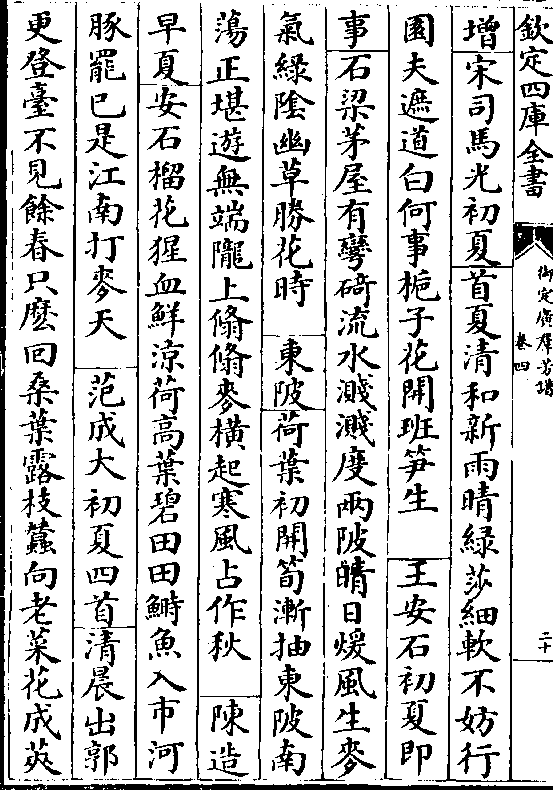 欽定四庫全書
御定廣羣芳譜
卷四
二十
增宋司馬光初夏首夏清和新雨晴綠莎細軟不妨行
園夫遮道白何事梔子花開班笋生　王安石初夏即
事石梁茅屋有彎碕流水濺濺度兩陂晴日煖風生麥
氣綠隂幽草勝花時　東陂荷葉初開筍漸抽東陂南
蕩正堪遊無端隴上翛翛麥橫起寒風占作秋　陳造
早夏安石榴花猩血鮮涼荷高葉碧田田鰣魚入市河
豚罷已是江南打麥天　范成大初夏四首清晨出郭
更登臺不見餘春只麽回桑葉露枝蠶向老菜花成莢